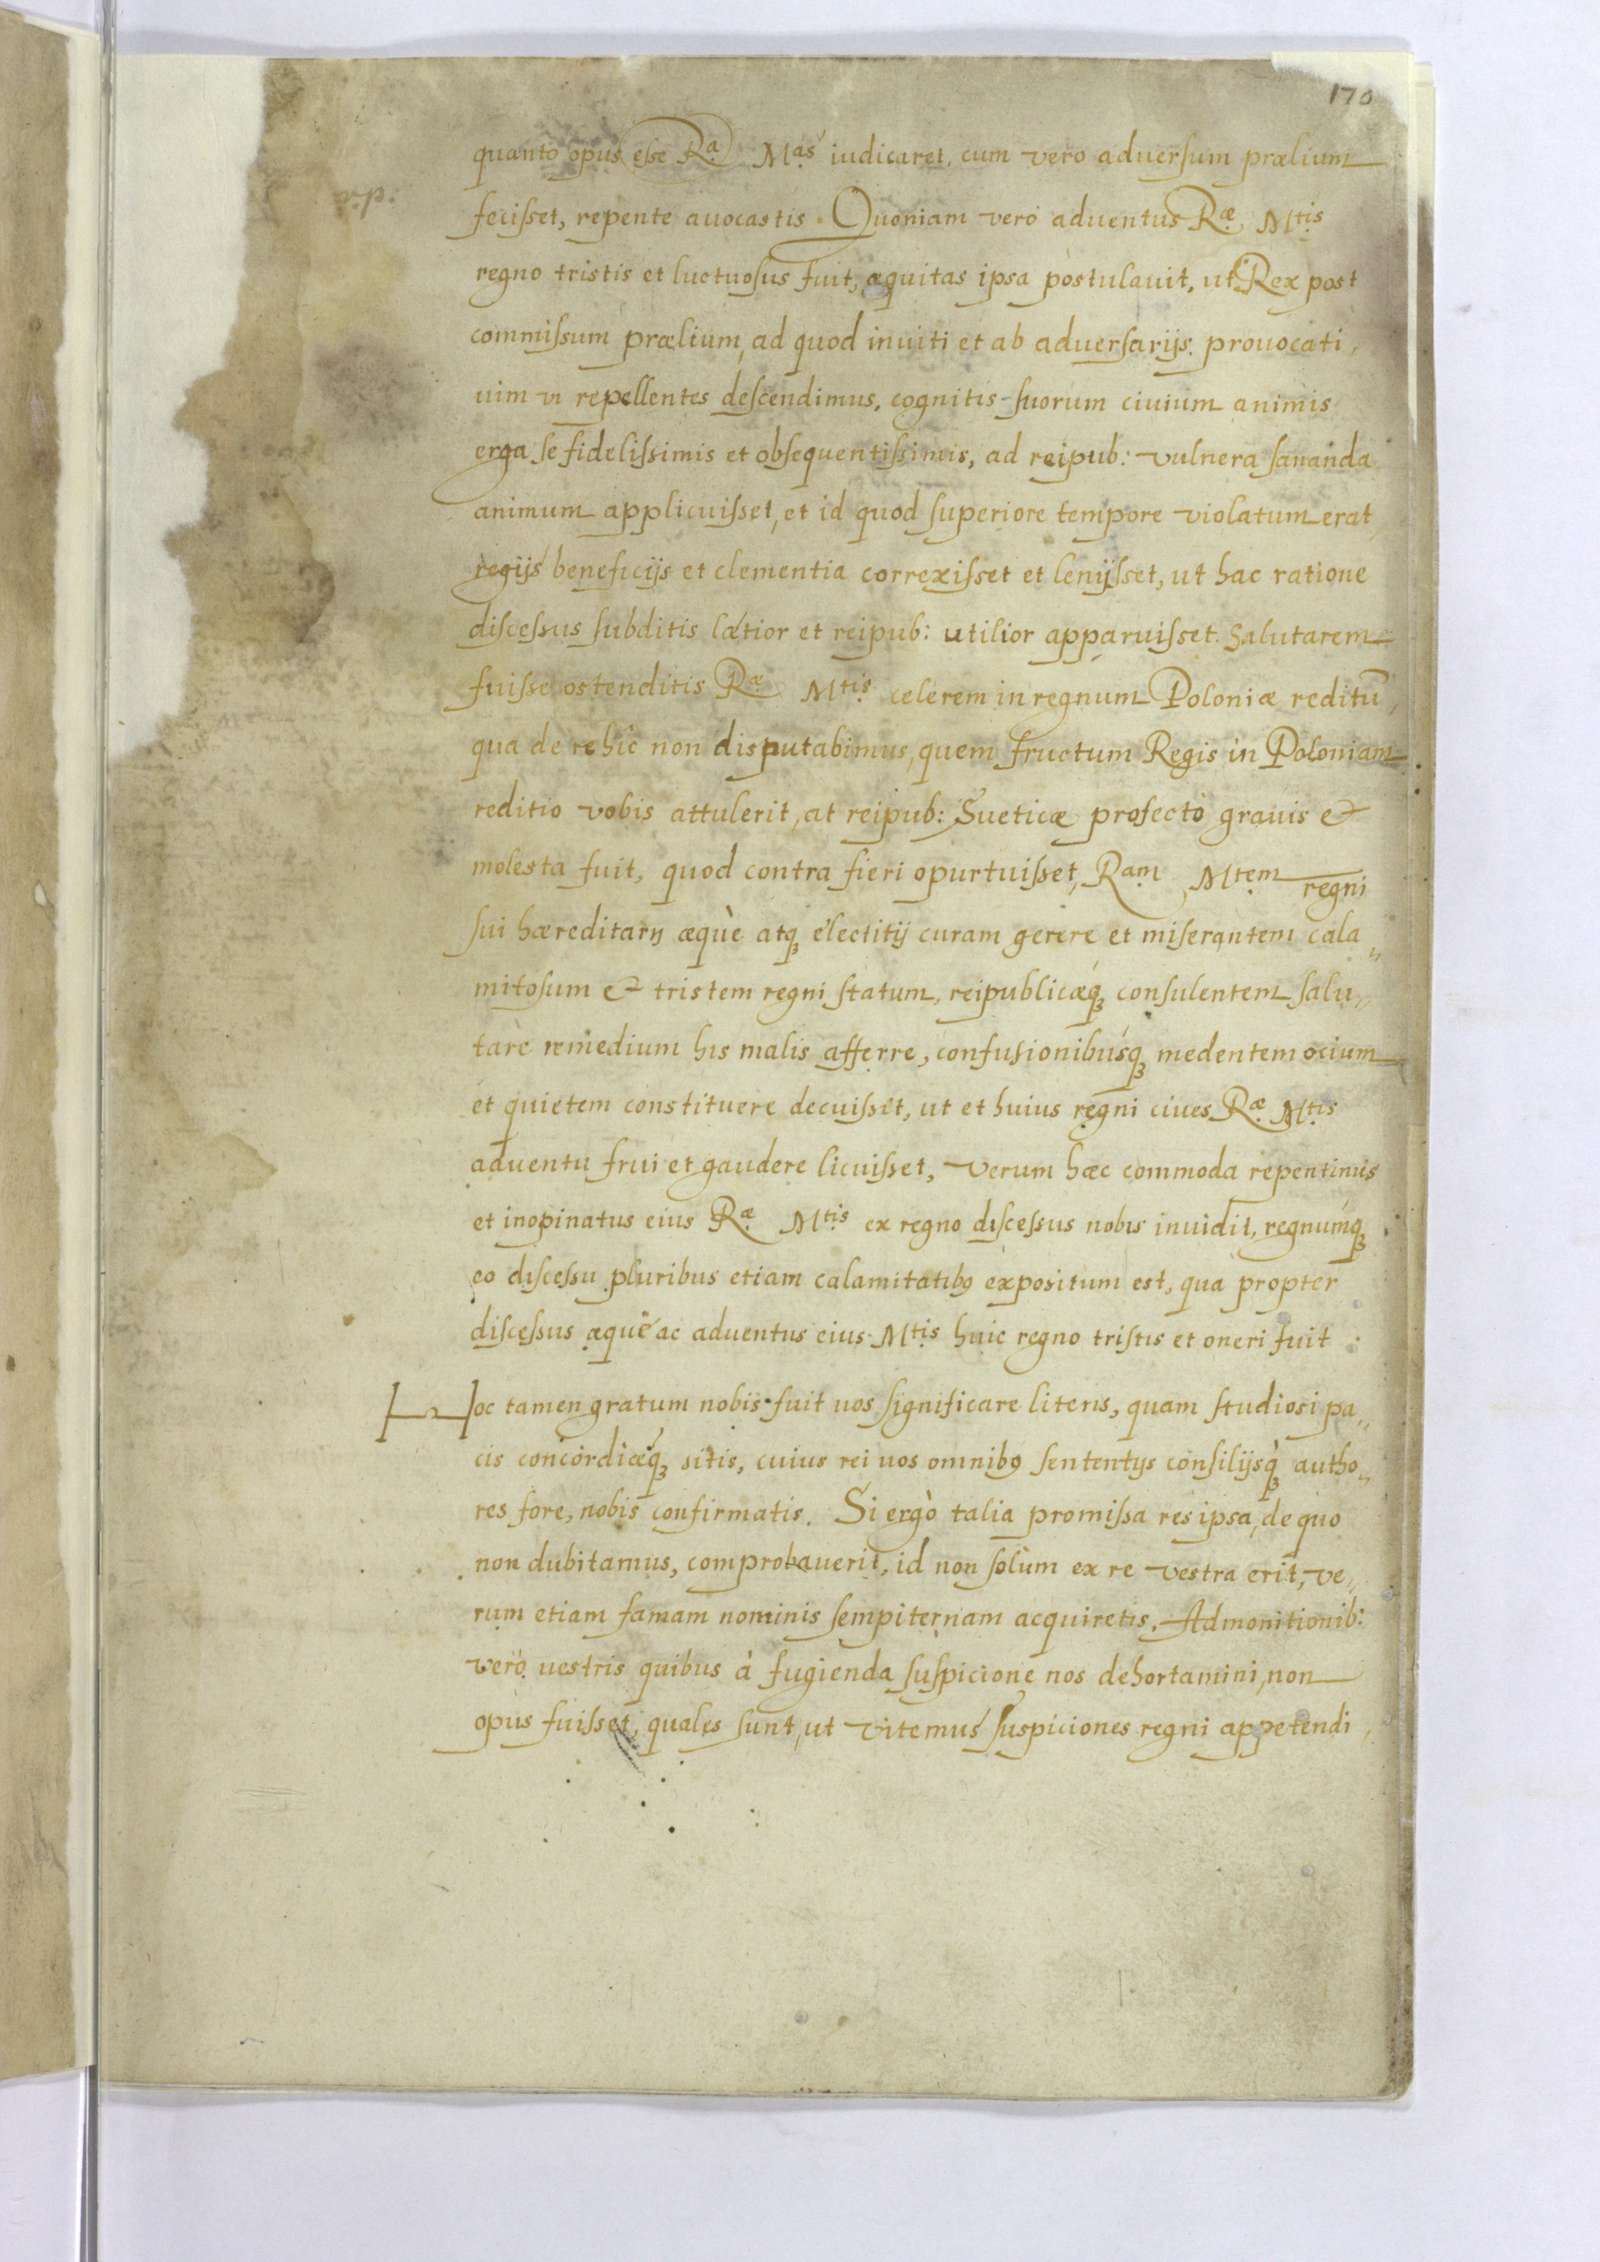 170
quanto opus esse Ra Mas iudicaret, cum vero adversum prælium
fecisset, repente auocastis. Quoniam verò aduentus Ræ Mtis
regno tristis et luctuosus fuit, æquitas ipsa postulauit, ut Rex post
commissum prælium, ad quod inuiti et ab aduersarijs prouocati,
uim vi repellentes descendimus, cognitis suorum ciuium animis
erga se fidelissimis et obsequentissimis, ad reipub: vulnera sananda
animum applicuisset, et id quod superiore tempore violatum erat,
regijs beneficijs et clementia correxisset et lenijsset, ut hac ratione
discessus subditis lætior et reipub: utilior apparuisset. Salutarem
fuisse ostenditis Ræ Mtis celerem in regnum Poloniæ reditū,
qua de re hîc non disputabimus, quem fructum Regis in Poloniam
reditio vobis attulerit, at reipub: Sueticæ profectò grauis &
molesta fuit, quod contra fieri opurtuisset, Ram Mtem regni
sui hæreditarij æquè atq electitij curam gerere et miserantem cala„
mitosum & tristem regni statum, reipublicæq́ consulentem salu„
tare remedium his malis afferre, confusionibusq́ medentem ocium
et quietem constituere decuisset, ut et huius regni ciues Ræ Mtis
aduentu frui et gaudere licuisset, verum hæc commoda repentinus
et inopinatus eius Ræ Mtis ex regno discessus nobis inuidit, regnumq́
eo discessu pluribus etiam calamitatibꝰ expositum est, qua propter
discessus æquè ac aduentus eius Mtis huic regno tristis et oneri fuit:
Hoc tamen gratum nobis fuit uos significare literis, quam studiosi pa„
cis concordiæq́ sitis, cuius rei uos omnibꝰ sententijs consilijsq́ autho„
res fore, nobis confirmatis. Si ergò talia promissa res ipsa, de quo
non dubitamus, comprobauerit, id non solùm ex re vestra erit, ve„
rum etiam famam nominis sempiternam acquiretis. Admonitionib:
verò uestris quibus à fugienda suspicione nos dehortamini, non
opus fuisset, quales sunt, ut vitemus suspiciones regni appetendi,